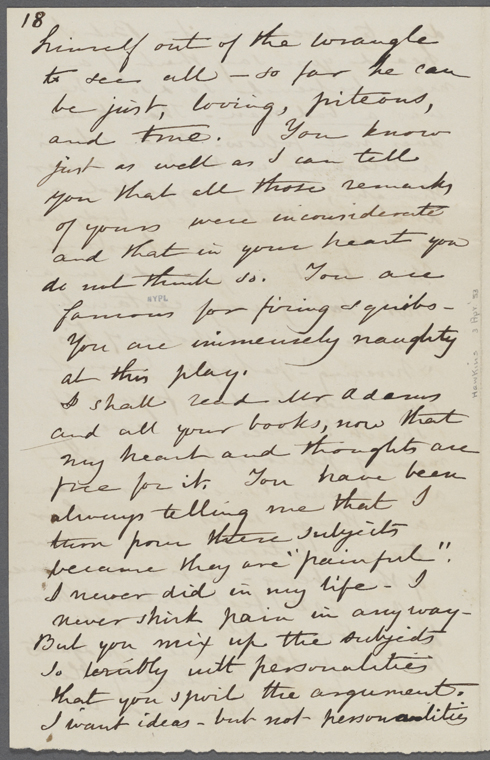 18
himself out of the wrangle
to see all - so far he can
be just, loving, piteous,
and true. You know
just as well as I can tell
you that all those remarks
of yours were inconsiderate
and that in your heart you
do not think so. You are
NYPL
famous for firing squibs -
You are immensely naughty
at this play.
I shall read Mr Adams
and all your books, now that
my heart and thoughts are
free for it. You have been
always telling me that I
turn from these subjects
because they are "painful".
I never did in my life - I
never shirk pain in any way -
But you mix up the subjects
so terribly with personalities
that you spoil the argument.
I want ideas - but not personalities
HAWKINS 3 Apr '53